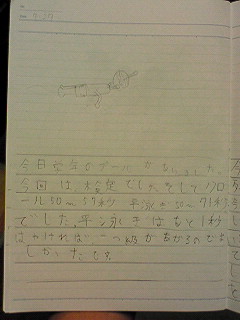 今日学年でプールがありました。
今回は、検定でしたそしてクロ
ール50m 57秒 平泳ぎ50m 71秒
でした。平泳ぎはもと1秒
はやければ一つ級が
しかたです。